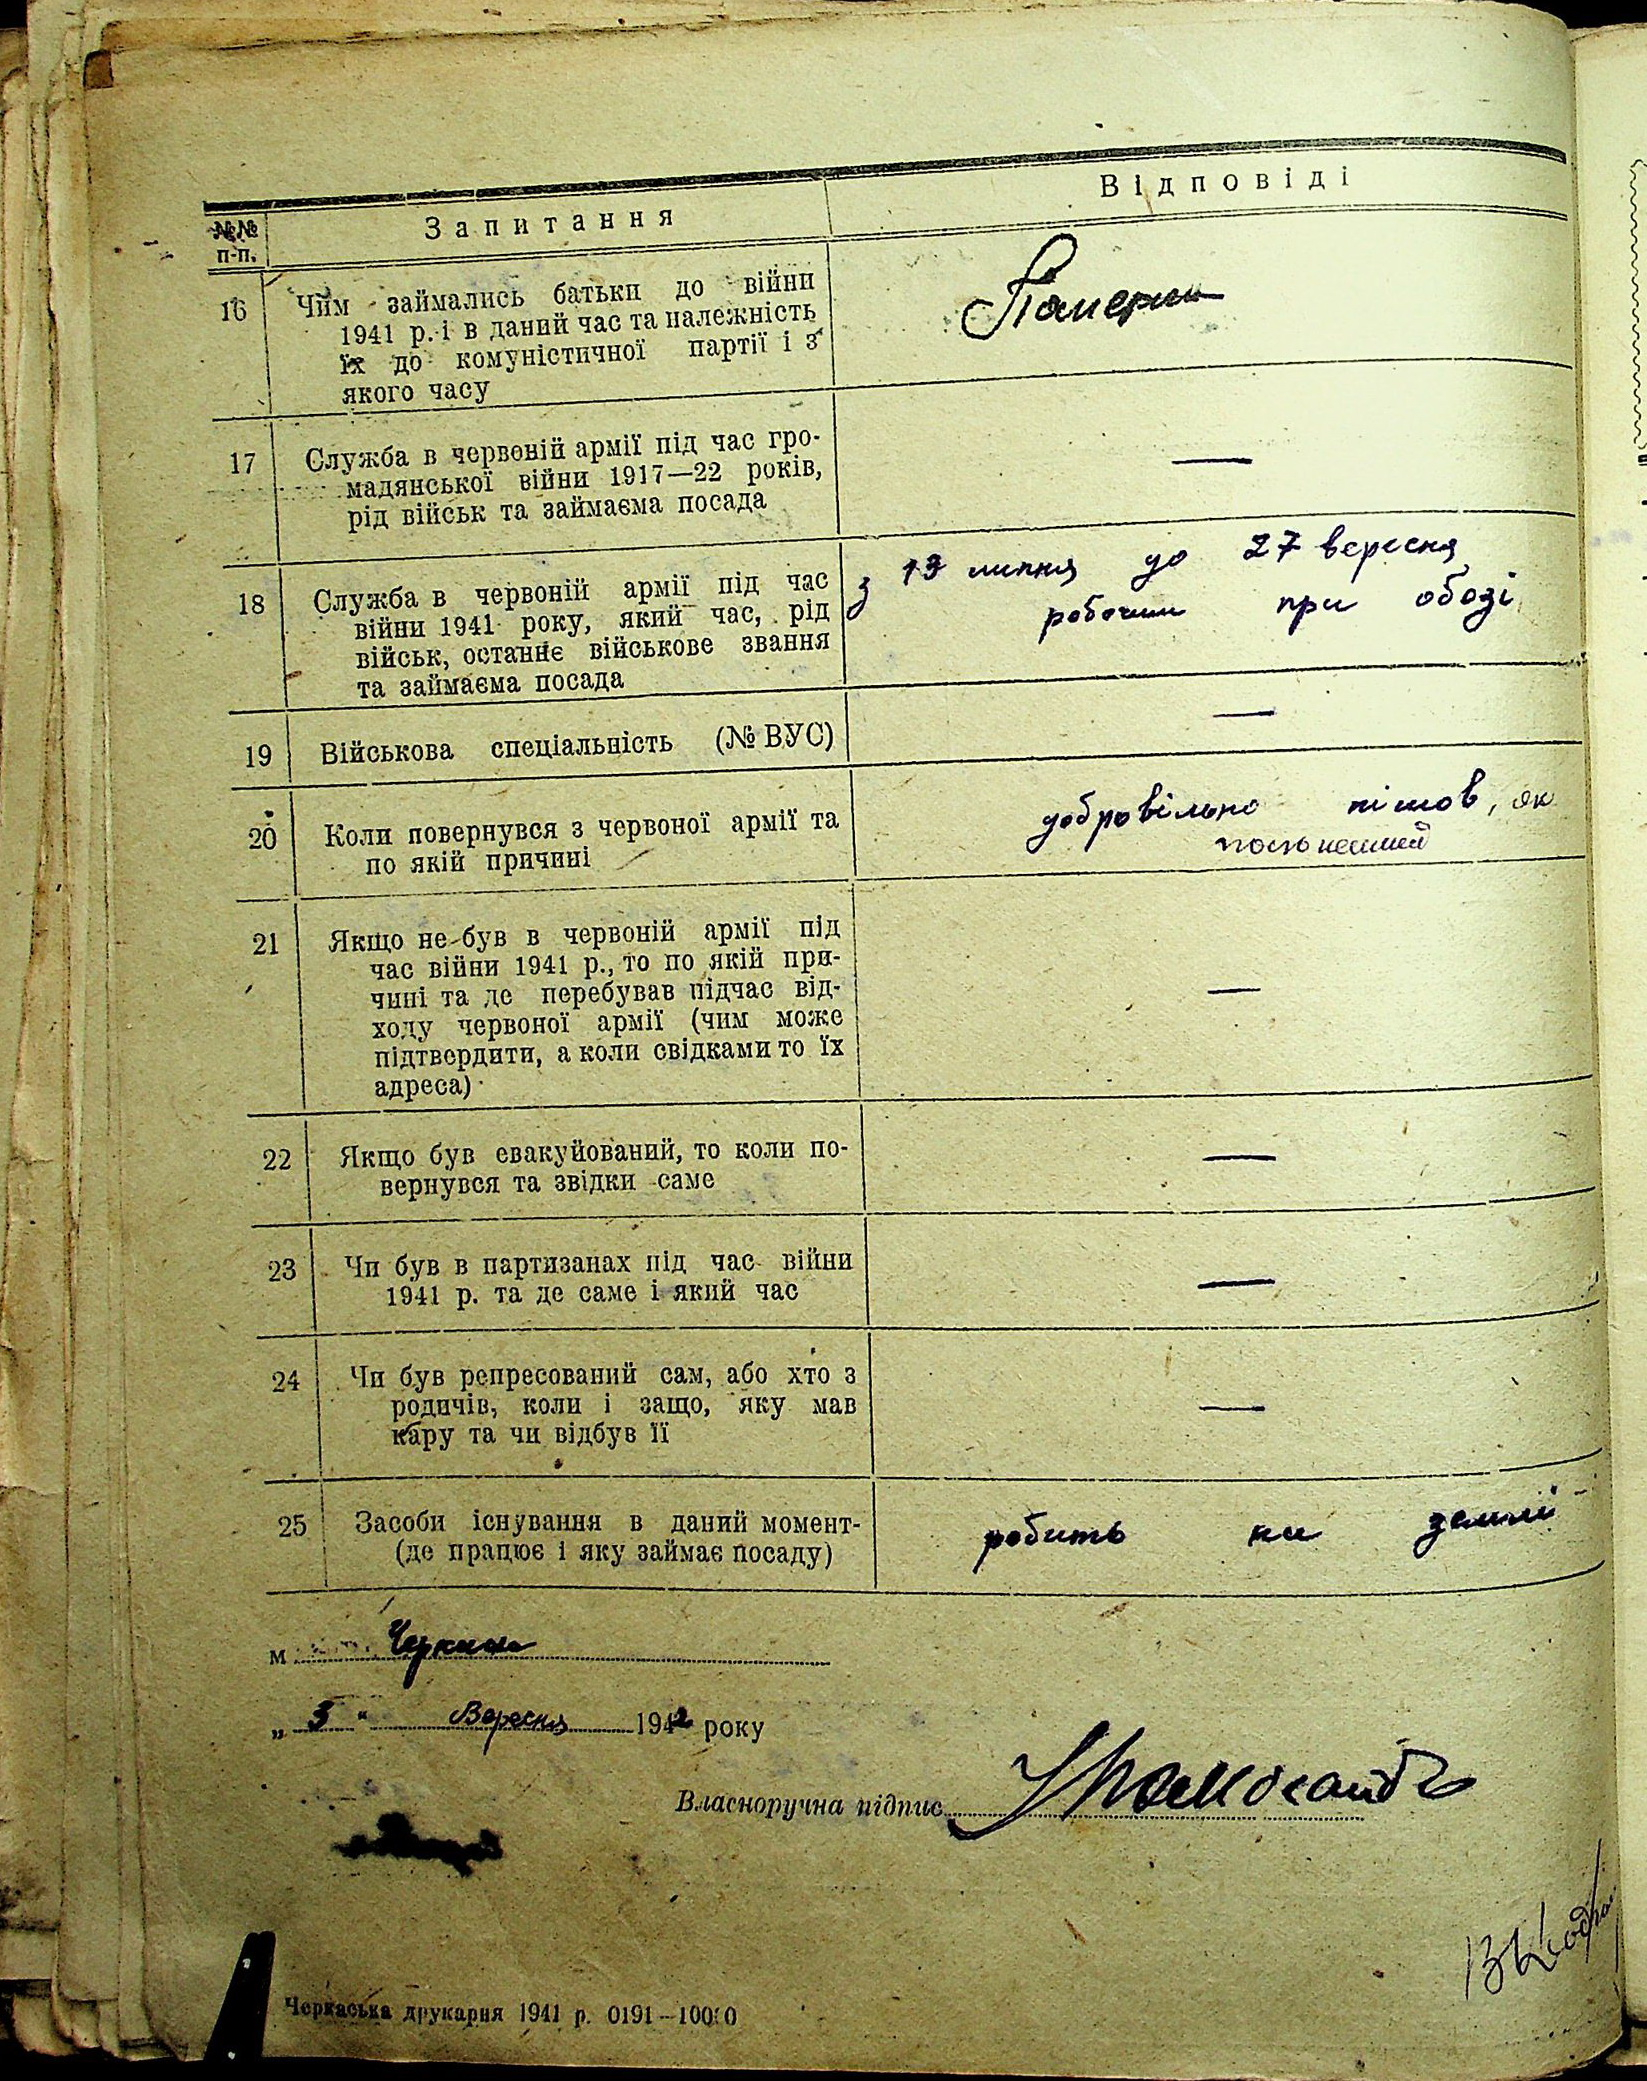 №№ п-п.
Запитання
Відповіді
16
Чим займались батьки до війни
1941 р. і в даний час та належність
їх до комуністичної партії і з
якого часу
Памерли
17
Служба в червоній армії під час гро-
мадянської війни 1917—22 років,
рід військ та займаєма посада
—
18
Служба в червоній армії під час
війни 1941 року, який час, рід
військ, останнє військове звання
та займаєма посада
з 13 липня до 27 вересня
робочим при обозі
19
Військова спеціальність (№ ВУС)
—
20
Коли повернувся з червоної армії та
по якій причині
добровільно пішов, як
21
Якщо не був в червоній армії під
час війни 1941 р., то по якій при-
чині та де перебував підчас від-
ходу червоної армії (чим може
підтвердити, а коли свідками то їх
адреса)
—
22
Якщо був евакуйований, то коли по-
вернувся та звідки саме
—
23
Чи був в партизанах під час війни
1941 р. та де саме і який час
—
24
Чи був репресований сам, або хто з
родичів, коли і защо, яку мав
кару та чи відбув її
—
25
Засоби існування в даний момент-
(де працює і яку займає посаду)
робить на землі
м Черкаси
„ 3 " Вересня 1942 року
Власноручна підпис
Черкаська друкарня 1941 р. 0191—10000